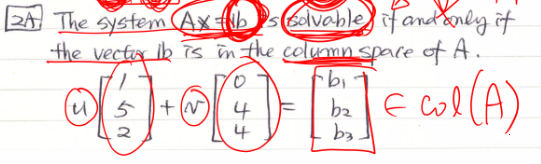 2A The system Ax = b is solvable if and only if
the vector b is in the column space of A.
u [1 5 2] + v [0 4 4] = [b₁ b₂ b₃] ∈ col(A)